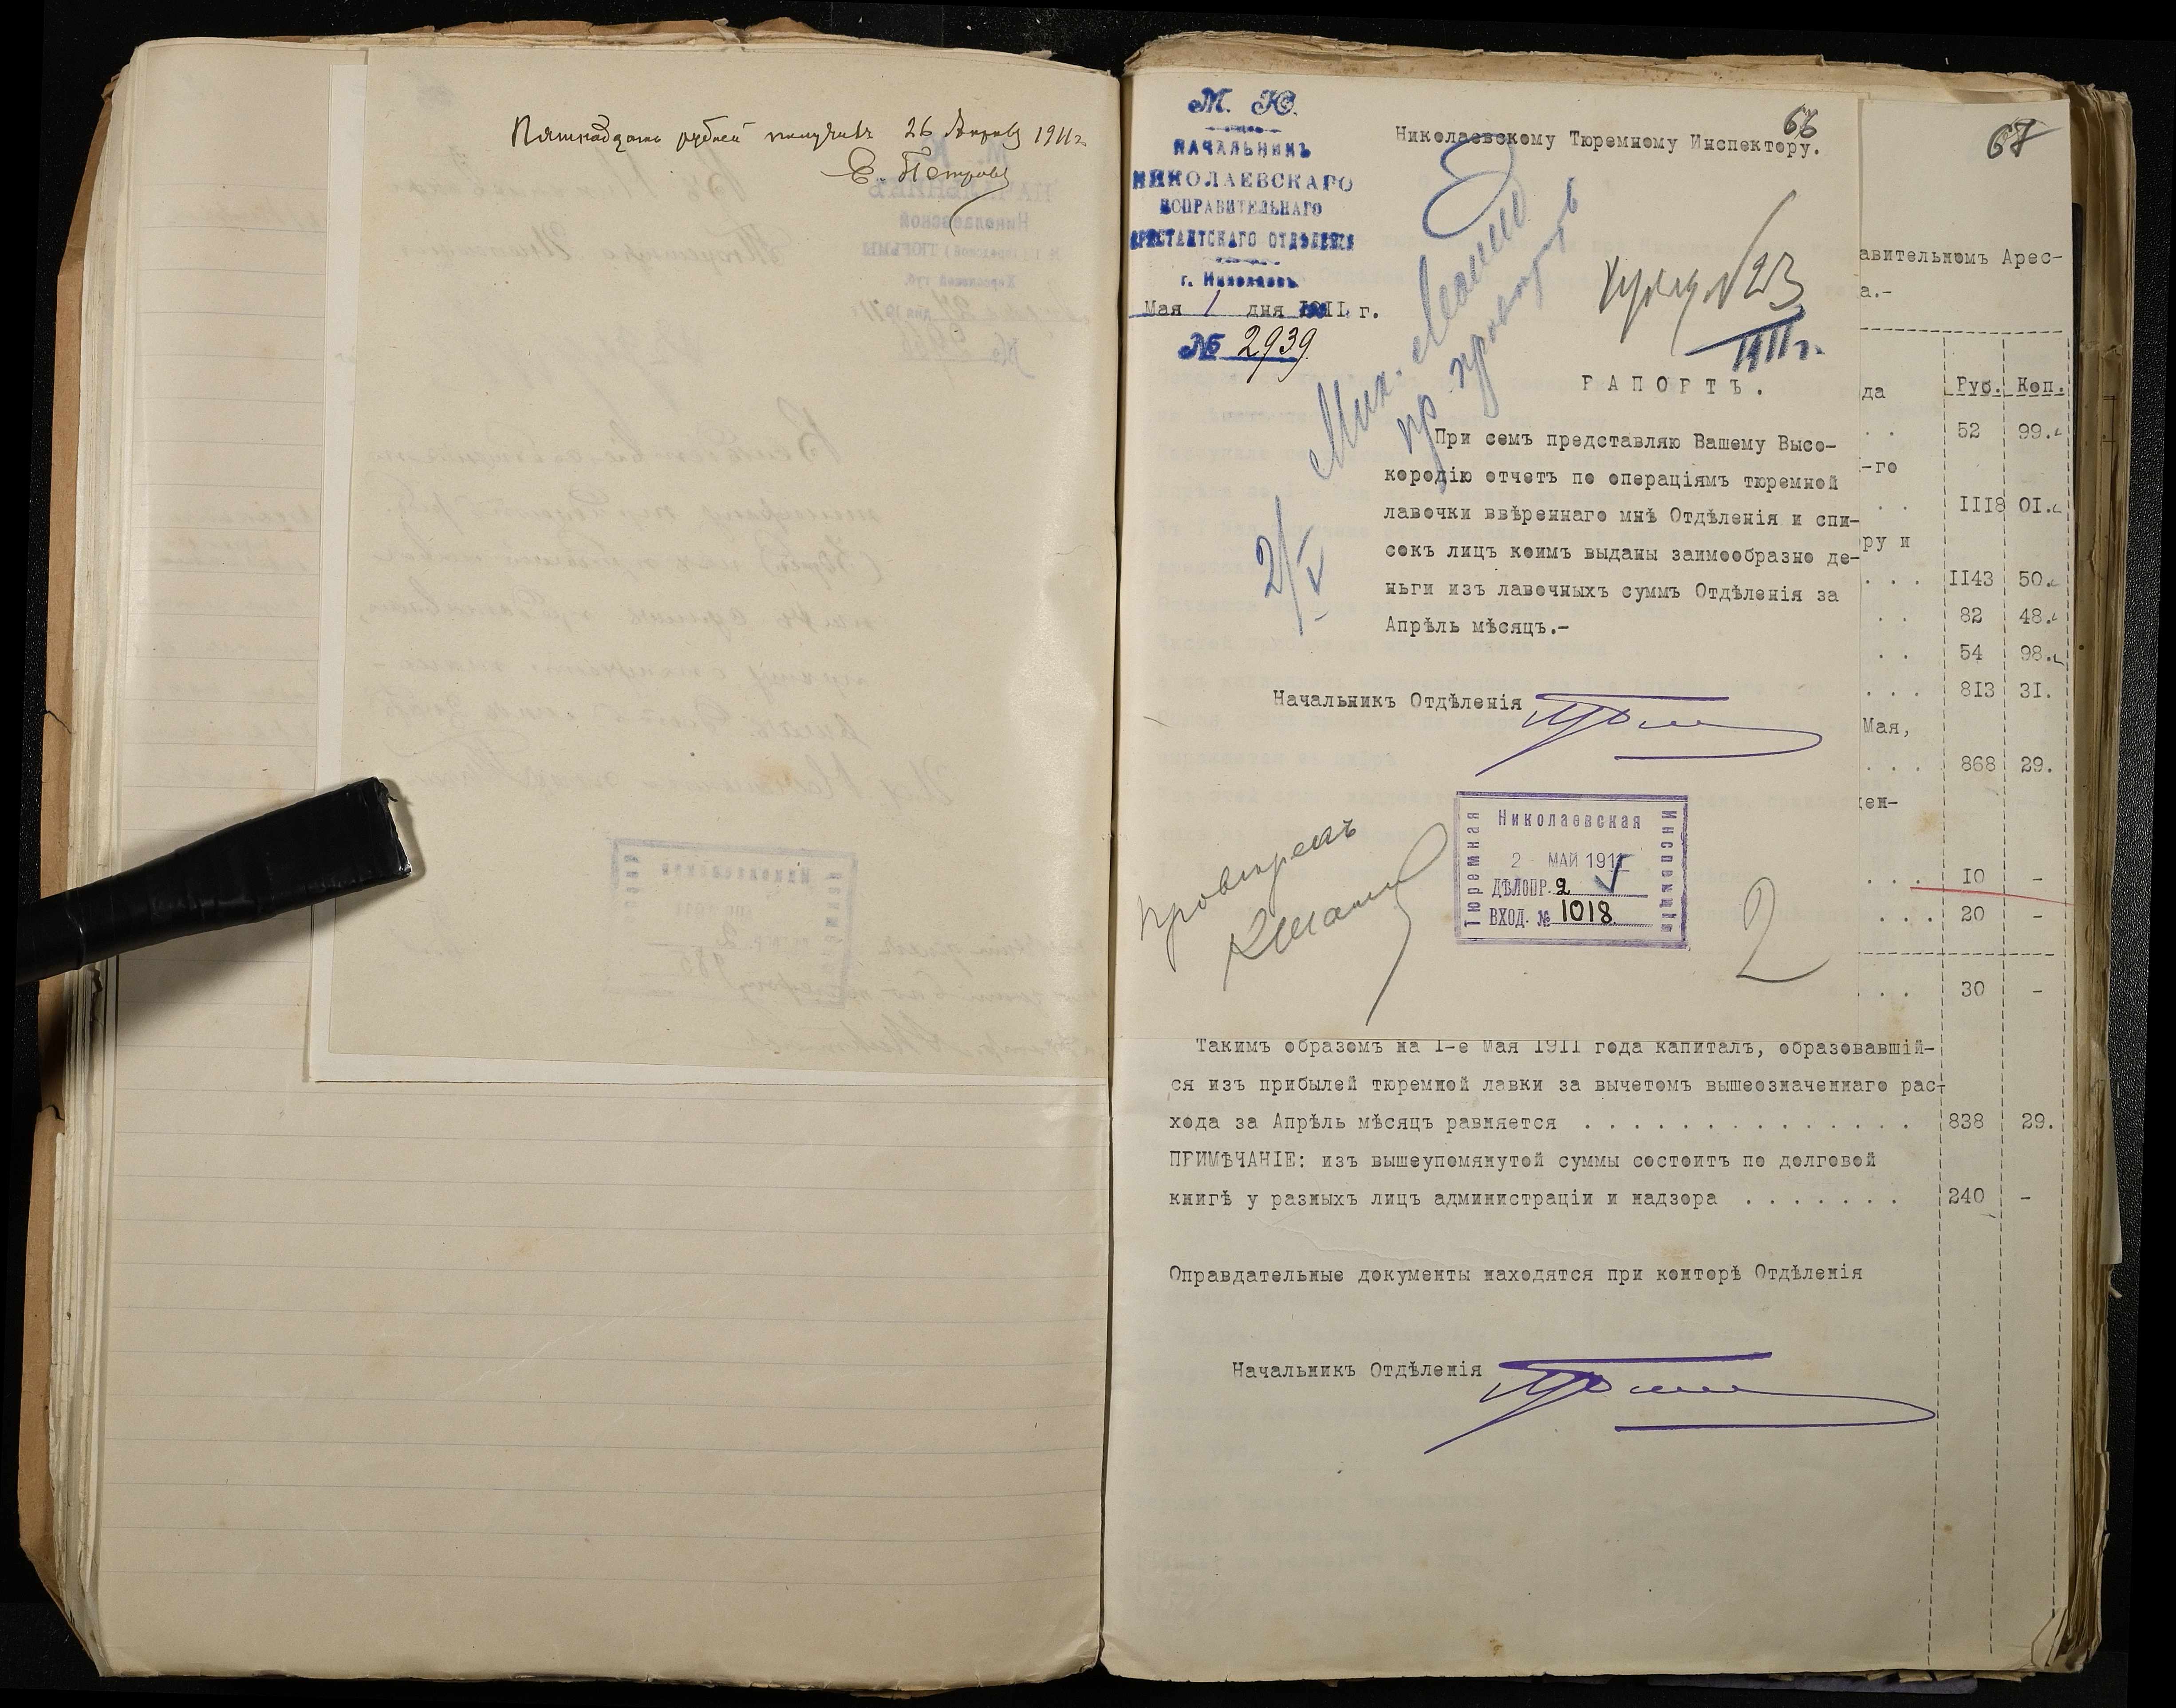 Пятнадцать рублей получилъ 26 Апрѣля 1911 г.
Е. Петровъ
М. Ю.
НАЧАЛЬНИКЪ
НИКОЛАЕВСКАГО
ИСПРАВИТЕЛЬНАГО
АРЕСТАНТСКАГО ОТДѢЛЕНІЯ
г. Николаевъ
Мая 1 дня 1911 г.
№ 2939
66
Николаевскому Тюремному Инспектору.
23
1911 г.
РАПОРТЪ.
При семъ представляю Вашему Высо-
кородію отчетъ по операціямъ тюремной
лавочки ввѣреннаго мнѣ Отдѣленія и спи-
сокъ лицъ коимъ выданы заимообразно де-
ньги изъ лавочныхъ суммъ Отдѣленія за
Апрѣль мѣсяцъ.-
2/V
Начальникъ Отдѣленія
Николаевская
Тюремная
Инспекція
2 МАЙ 1911
ДѢЛОПР. 2
ВХОД. № 1018
2
67
авительномъ Арес-
а.-
да Руб. Коп.
. . 52 99.
-го
. . 1118 01.
ру и
. . . 1143 50.
. . 82 48.
. . 54 98.
. . . 813 31.
Мая,
. . . 868 29.
ден-
. . . 10 -
. . . 20 -
. . . 30 -
Такимъ образомъ на 1-е Мая 1911 года капиталъ, образовавшій-
ся изъ прибылей тюремной лавки за вычетомъ вышеозначеннаго рас-
хода за Апрѣль мѣсяцъ равняется . . . . . . . . . . . . . . 838 29.
ПРИМѢЧАНІЕ: изъ вышеупомянутой суммы состоитъ по долговой
книгѣ у разныхъ лицъ администраціи и надзора . . . . . . . 240 -
Оправдательные документы находятся при конторѣ Отдѣленія
Начальникъ Отдѣленія